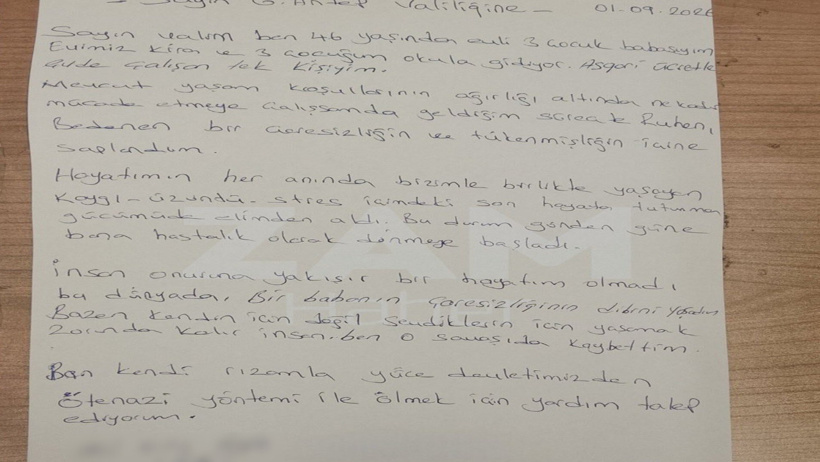 Sayın G.Antep Valiliğine - 01-09.2026
Sayın valim ben 46 yaşından evli 3 çocuk babasıyım
Evimiz kira ve 3 çocuğum okula gidiyor. Asgari ücretle
Evde çalışan tek kişiyim.
Mevcut yaşam koşullarının ağırlığı altında ne kadar
mücade etmeye çalışsamda geldiğim süreçte Ruhen,
Bedenen bir çaresizliğin ve tükenmişliğin içine
saplandım.
Hayatımın her anında bizimle birlikte yaşayan
Kaygı-üzüntü-stres içimdeki son hayata tutunma
gücümüde elimden aldı. Bu durum günden güne
bana hastalık olarak dönmeye başladı.
insan onuruna yakışır bir hayatım olmadı
bu dünyada, Bir babanın çaresizliğinin dibini yaşadım
Bazen kendin için değil sevdiklerin için yaşamak
Zorunda kalır insan. ben o savaşıda kaybettim.
Ben kendi rızamla yüce devletimizden
Ötenazi yöntemi ile ölmek için yardım talep
ediyorum.
ZAM